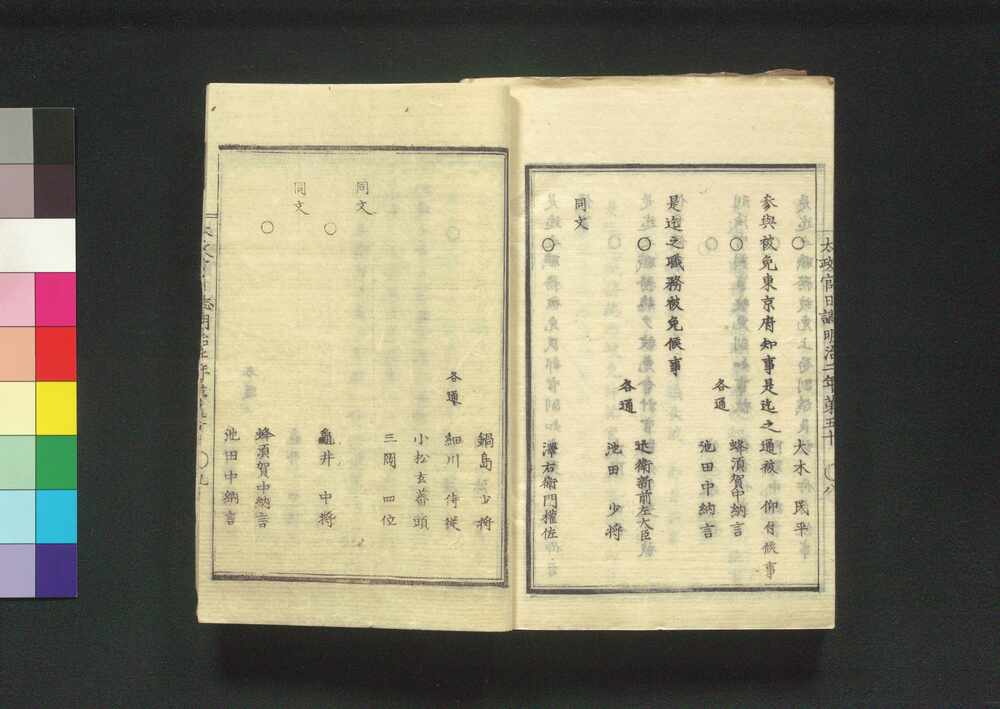 太政官日誌明治二年第五十
〇
大木民平
參與被免東京府知事是迄之通被仰付候事
〇
各通
蜂須賀中納言
池田中納言
是迄之職務被免候事
〇
各通
近衛新前左大臣
池田少將
同文
〇
澤右衛門權佐
鍋島少將
各通
細川侍從
小松玄蕃頭
三岡四位
同文
〇
龜井中將
同文
〇
蜂須賀中納言
池田中納言
〇九